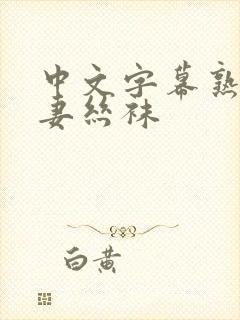 中文字幕熟
妻丝袜
白黄